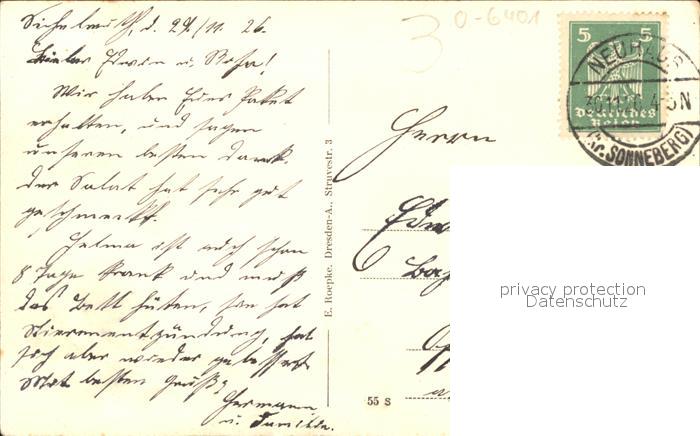 d. 29/11. 26.
Liebe Edwin u. Rosa!
Wir haben Euer Paket
erhalten, und sagen
unseren besten Dank.
Der Salat hat sehr gut
geschmeckt.
Helma ist auch schon
8 Tage krank und muß
das Bett hüten, sie hat
Nierenentzündung, hat
sich aber wieder gebessert
Mit besten Grüße
Hermann
u. Familie.
E. Roepke, Dresden-A., Struvestr. 3
55 S
3
0-6401
5 5
Deutsches
Reich
NEUHAUS
30.11.26. 4-5 N
(Kr. SONNEBERG)
Herrn
privacy protection
Datenschutz